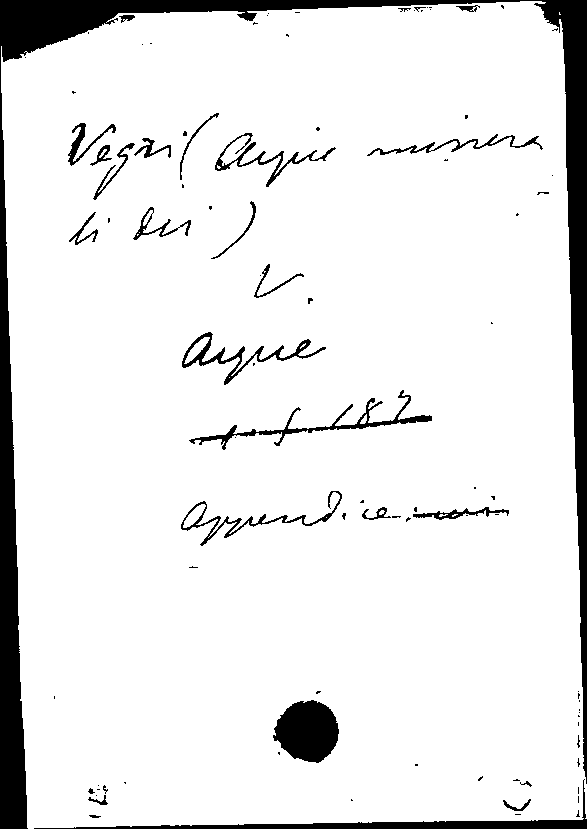 Vegri (Aque minera
li dei)
V.
Aque
f. 187
Appendice